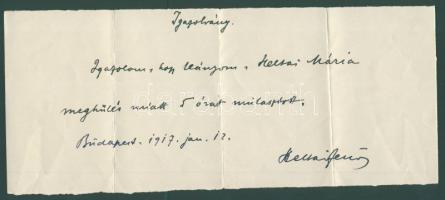 Igazolvány.
Igazolom, hogy leányom, Heltai Mária
meghűlés miatt 5 órát mulasztott.
Budapest. 1917. jan. 12.
Heltai Jenő